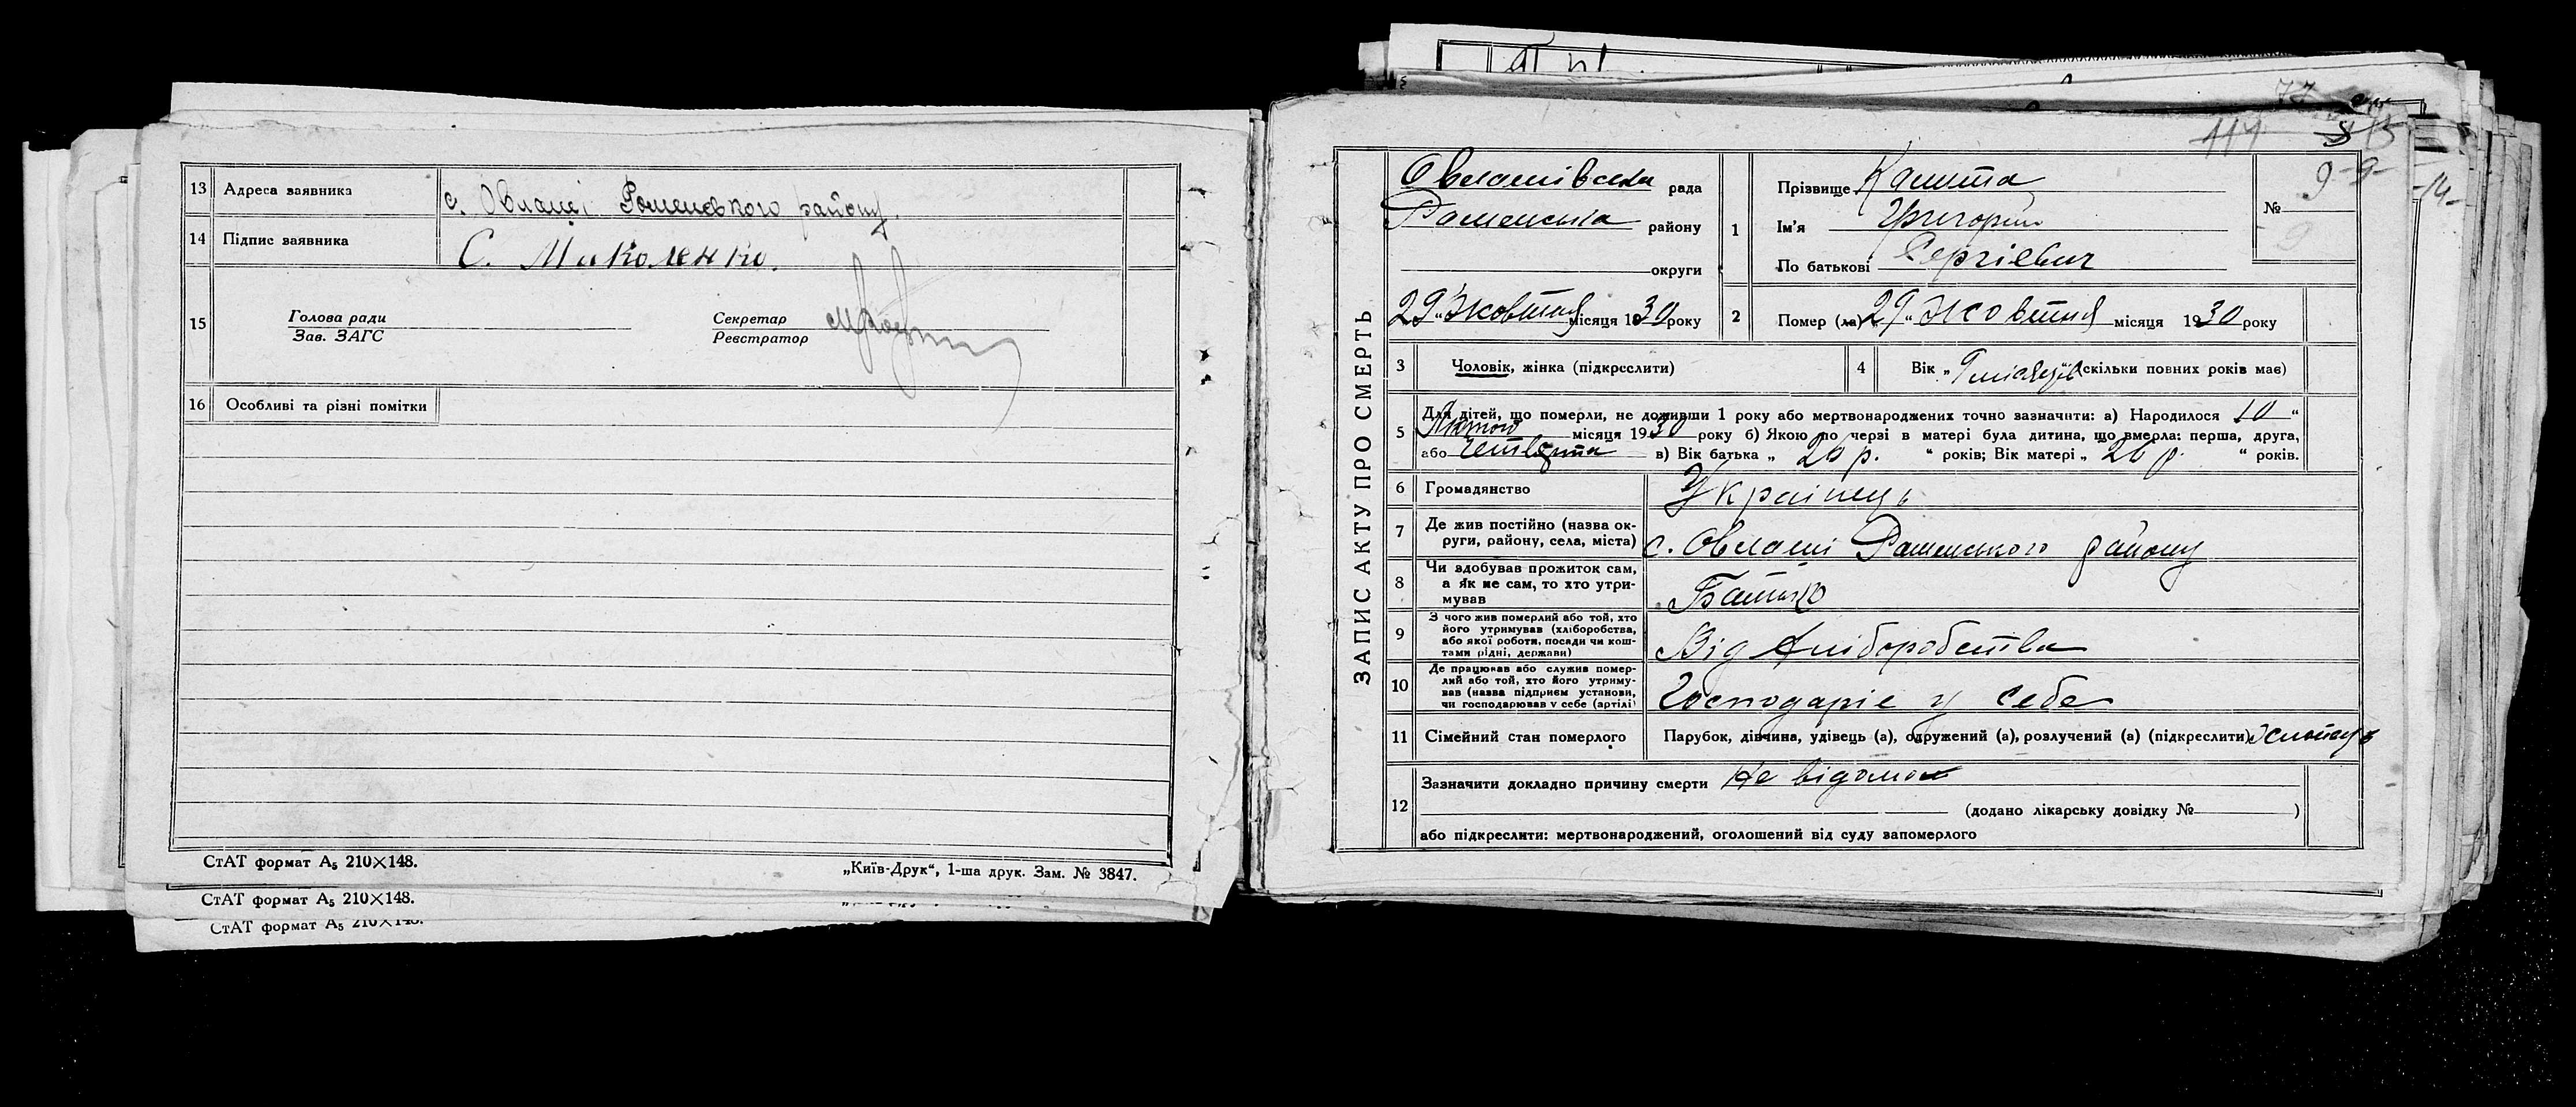 13 Адреса заявника с. Овлаші Роменського району.
14 Підпис заявника С. Миколенко.
15 Голова ради Секретар
Зав. ЗАГС Реєстратор
16 Особливі та різні помітки
СтАТ формат А₅ 210×148.
„Київ-Друк“, 1-ша друк. Зам. № 3847.
СтАТ формат А₅ 210×148.
СтАТ формат А₅ 210×148.
114
ЗАПИС АКТУ ПРО СМЕРТЬ
Овлашівська рада
Роменська району
округи
29 „Жовтня місяця 1930 року
1 Прізвище Калита
Ім'я Григорий
По батькові Сергієвич
№ 9
2 Помер (ла) „29“ Жовтня місяця 1930 року
3 Чоловік, жінка (підкреслити)
4 Вік „9 місяців скільки повних років має)
5 Для дітей, що померли, не доживши 1 року або мертвонароджених точно зазначити: а) Народилося 10 “
Лютого місяця 1930 року б) Якою по черзі в матері була дитина, що вмерла: перша, друга,
або четверта в) Вік батька „ 26 р. “ років; Вік матері „ 26 р. “ років.
6 Громадянство Українець
7 Де жив постійно (назва ок-
руги, району, села, міста) с. Овлаші Роменського району
8 Чи здобував прожиток сам,
а як не сам, то хто утри-
мував Батько
9 З чого жив померлий або той, хто
його утримував (хліборобства,
або якої роботи, посади чи кош-
тами рідні, держави) Від хліборобства
10 Де працював або служив помер-
лий або той, хто його утриму-
вав (назва підприєм установи,
чи господарював у себе (артілі) Господаріє у себе
11 Сімейний стан померлого Парубок, дівчина, удівець (а), одружений (а), розлучений (а) (підкреслити) Хлопець
12 Зазначити докладно причину смерти Не відомо
(додано лікарську довідку № )
або підкреслити: мертвонароджений, оголошений від суду запомерлого